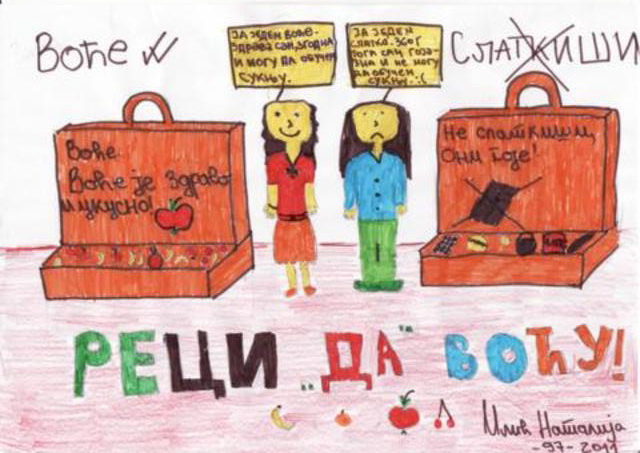 Воће
СЛАТКИШИ
ЈА ЈЕДЕМ ВОЋЕ.
ЗДРАВА САМ, ЗГОДНА
И МОГУ ДА ОБУЧЕМ
СУКЊУ.
ЈА ЈЕДЕМ
СЛАТКО. ЗБОГ
ТОГА САМ ГОЈА-
ЗНА И НЕ МОГУ
ДА ОБУЧЕМ
СУКЊУ. :(
Воће
Воће је здраво
и укусно!
Не слаткиши,
они гоје!
РЕЦИ „ДА“ ВОЋУ!
Илић Наталија
-97- 2011